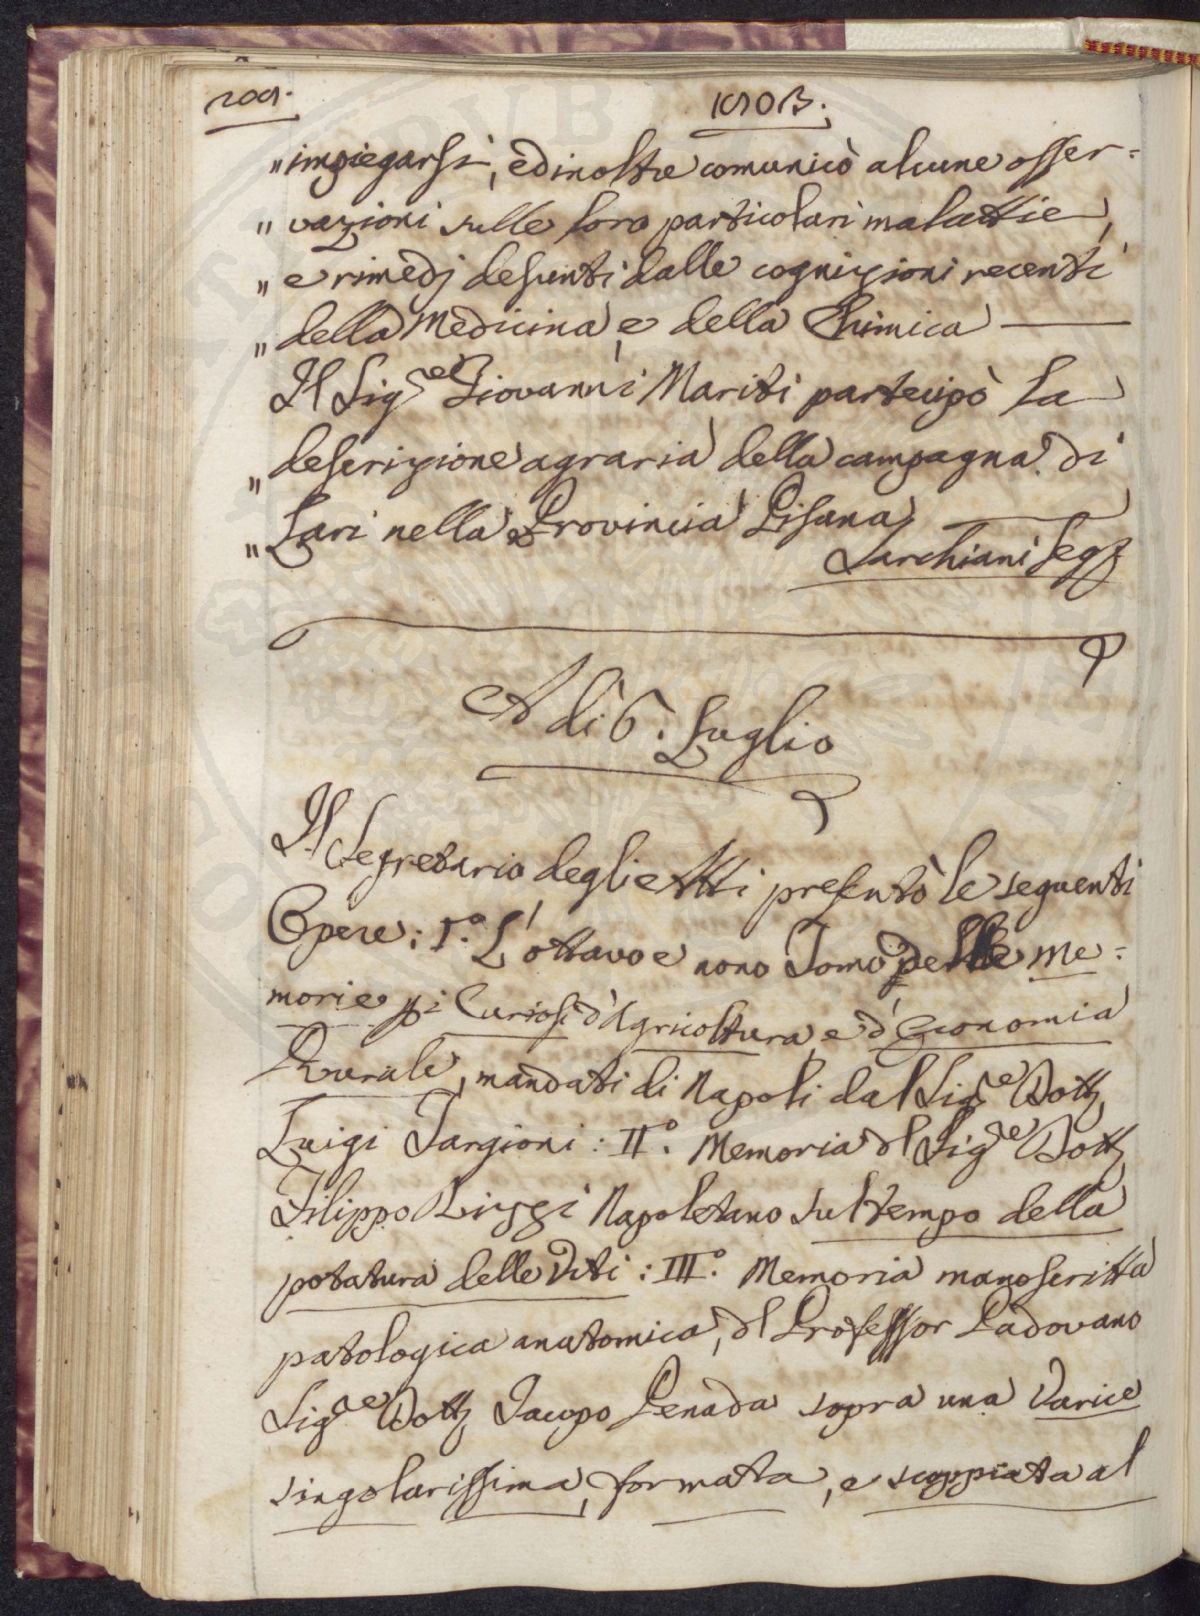 200.
1803.
" impiegarsi, ed inoltre comunicò alcune osser=
" vazioni sulle loro particolari malattie,
" e rimedj desunti dalle cognizioni recenti
" della Medicina, e della Chimica —
Il Sig.re Giovanni Mariti partecipò la
" descrizione agraria della campagna di
" Lari nella Provincia Pisana —
Sarchiani Seg.
A dì 6. Luglio
Il Segretario degli Atti presentò le seguenti
Opere: I.o L'ottavo e nono Tomo delle Me=
morie pi Curiosi d'Agricoltura, e d'Economia
Rurale, mandati di Napoli dal Sig.re Dott.
Luigi Targioni: II.o Memoria del Sig.re Dott.
Filippo Rizzi Napoletano sul tempo della
potatura delle Viti: III.o Memoria manoscritta
patologica anatomica, del Professor Padovano
Sig.re Dott. Jacopo Penada sopra una Varice
singolarissima, formata, e scoppiata al